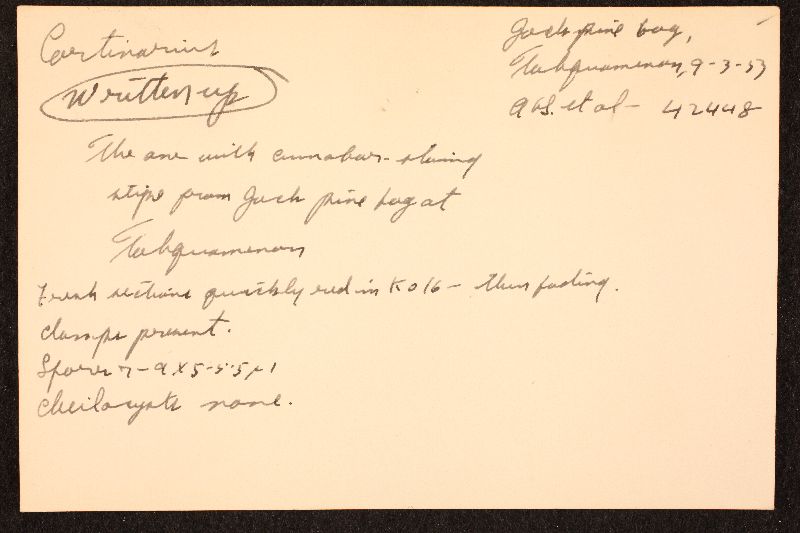 Cortinarius
Written up
Jack pine bog,
Tahquamenon, 9-3-53
AHS. et al - 42448
The one with cinnabar-staining
stipe from Jack pine bog at
Tahquamenon
Fresh sections quickly red in KOH - then fading.
Clamps present.
Spores 7-9 x 5-5.5 µ
Cheilocysts none.